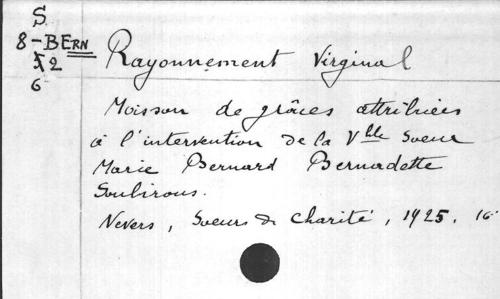 S.
8-BERN
52
6
Rayonnement Virginal
Moisson de grâces attribuées
à l'intervention de la Vble Soeur
Marie Bernard Bernadette
Soubirous.
Nevers, Soeurs de Charité, 1925. 16